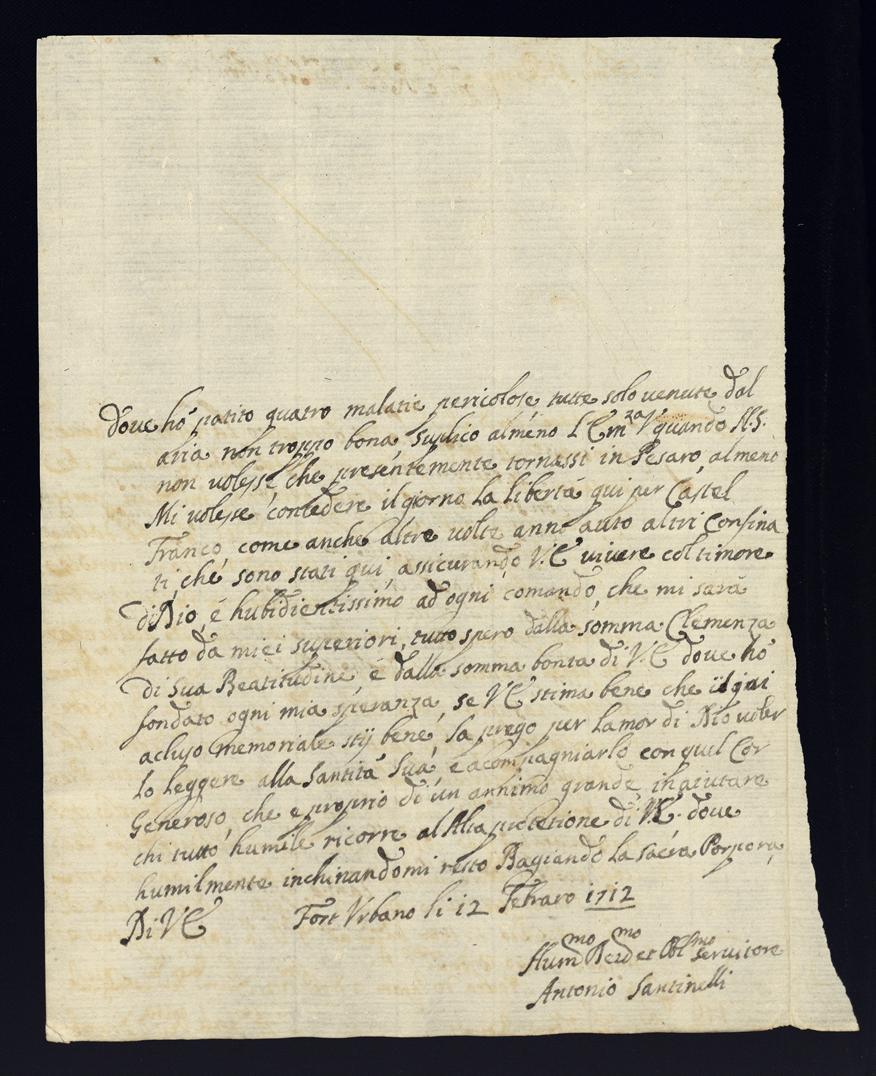 dove ho patito quatro malatie pericolose tutte solo venute dal
aria non troppo bona suplico almeno L'Em.za V. quando N.S.
non volesse che presentemente tornassi in Pesaro, almeno
Mi volesse concedere il giorno La libertà qui per Castel
Franco come anche altre volte anno auto altri Confina
ti, che sono stati qui, assicurando V.E vivere col timore
di Dio, é hubidientissimo ad ogni comando, che mi sarà
fatto da miei superiori, tutto spero dalla somma Clemenza
di sua Beatitudine é dalla somma bonta di V.E dove ho
fondato ogni mia speranza, se VE stima bene che il qui
acluso memoriale stij bene, la prego per lamor di Dio voler
lo leggere alla Santità Sua, é acompagniarlo con quel Cor
Generoso, che e proprio di un annimo grande in aiutare
chi tutto humile ricorre al Alta protetione di VE. dove
humilmente inchinandomi resto Bagiando La sacra Porpora,
Di VE Fort Urbano li 12 Febraro 1712
Hum.mo Dev.mo et Obl.mo servitore
Antonio Santinelli